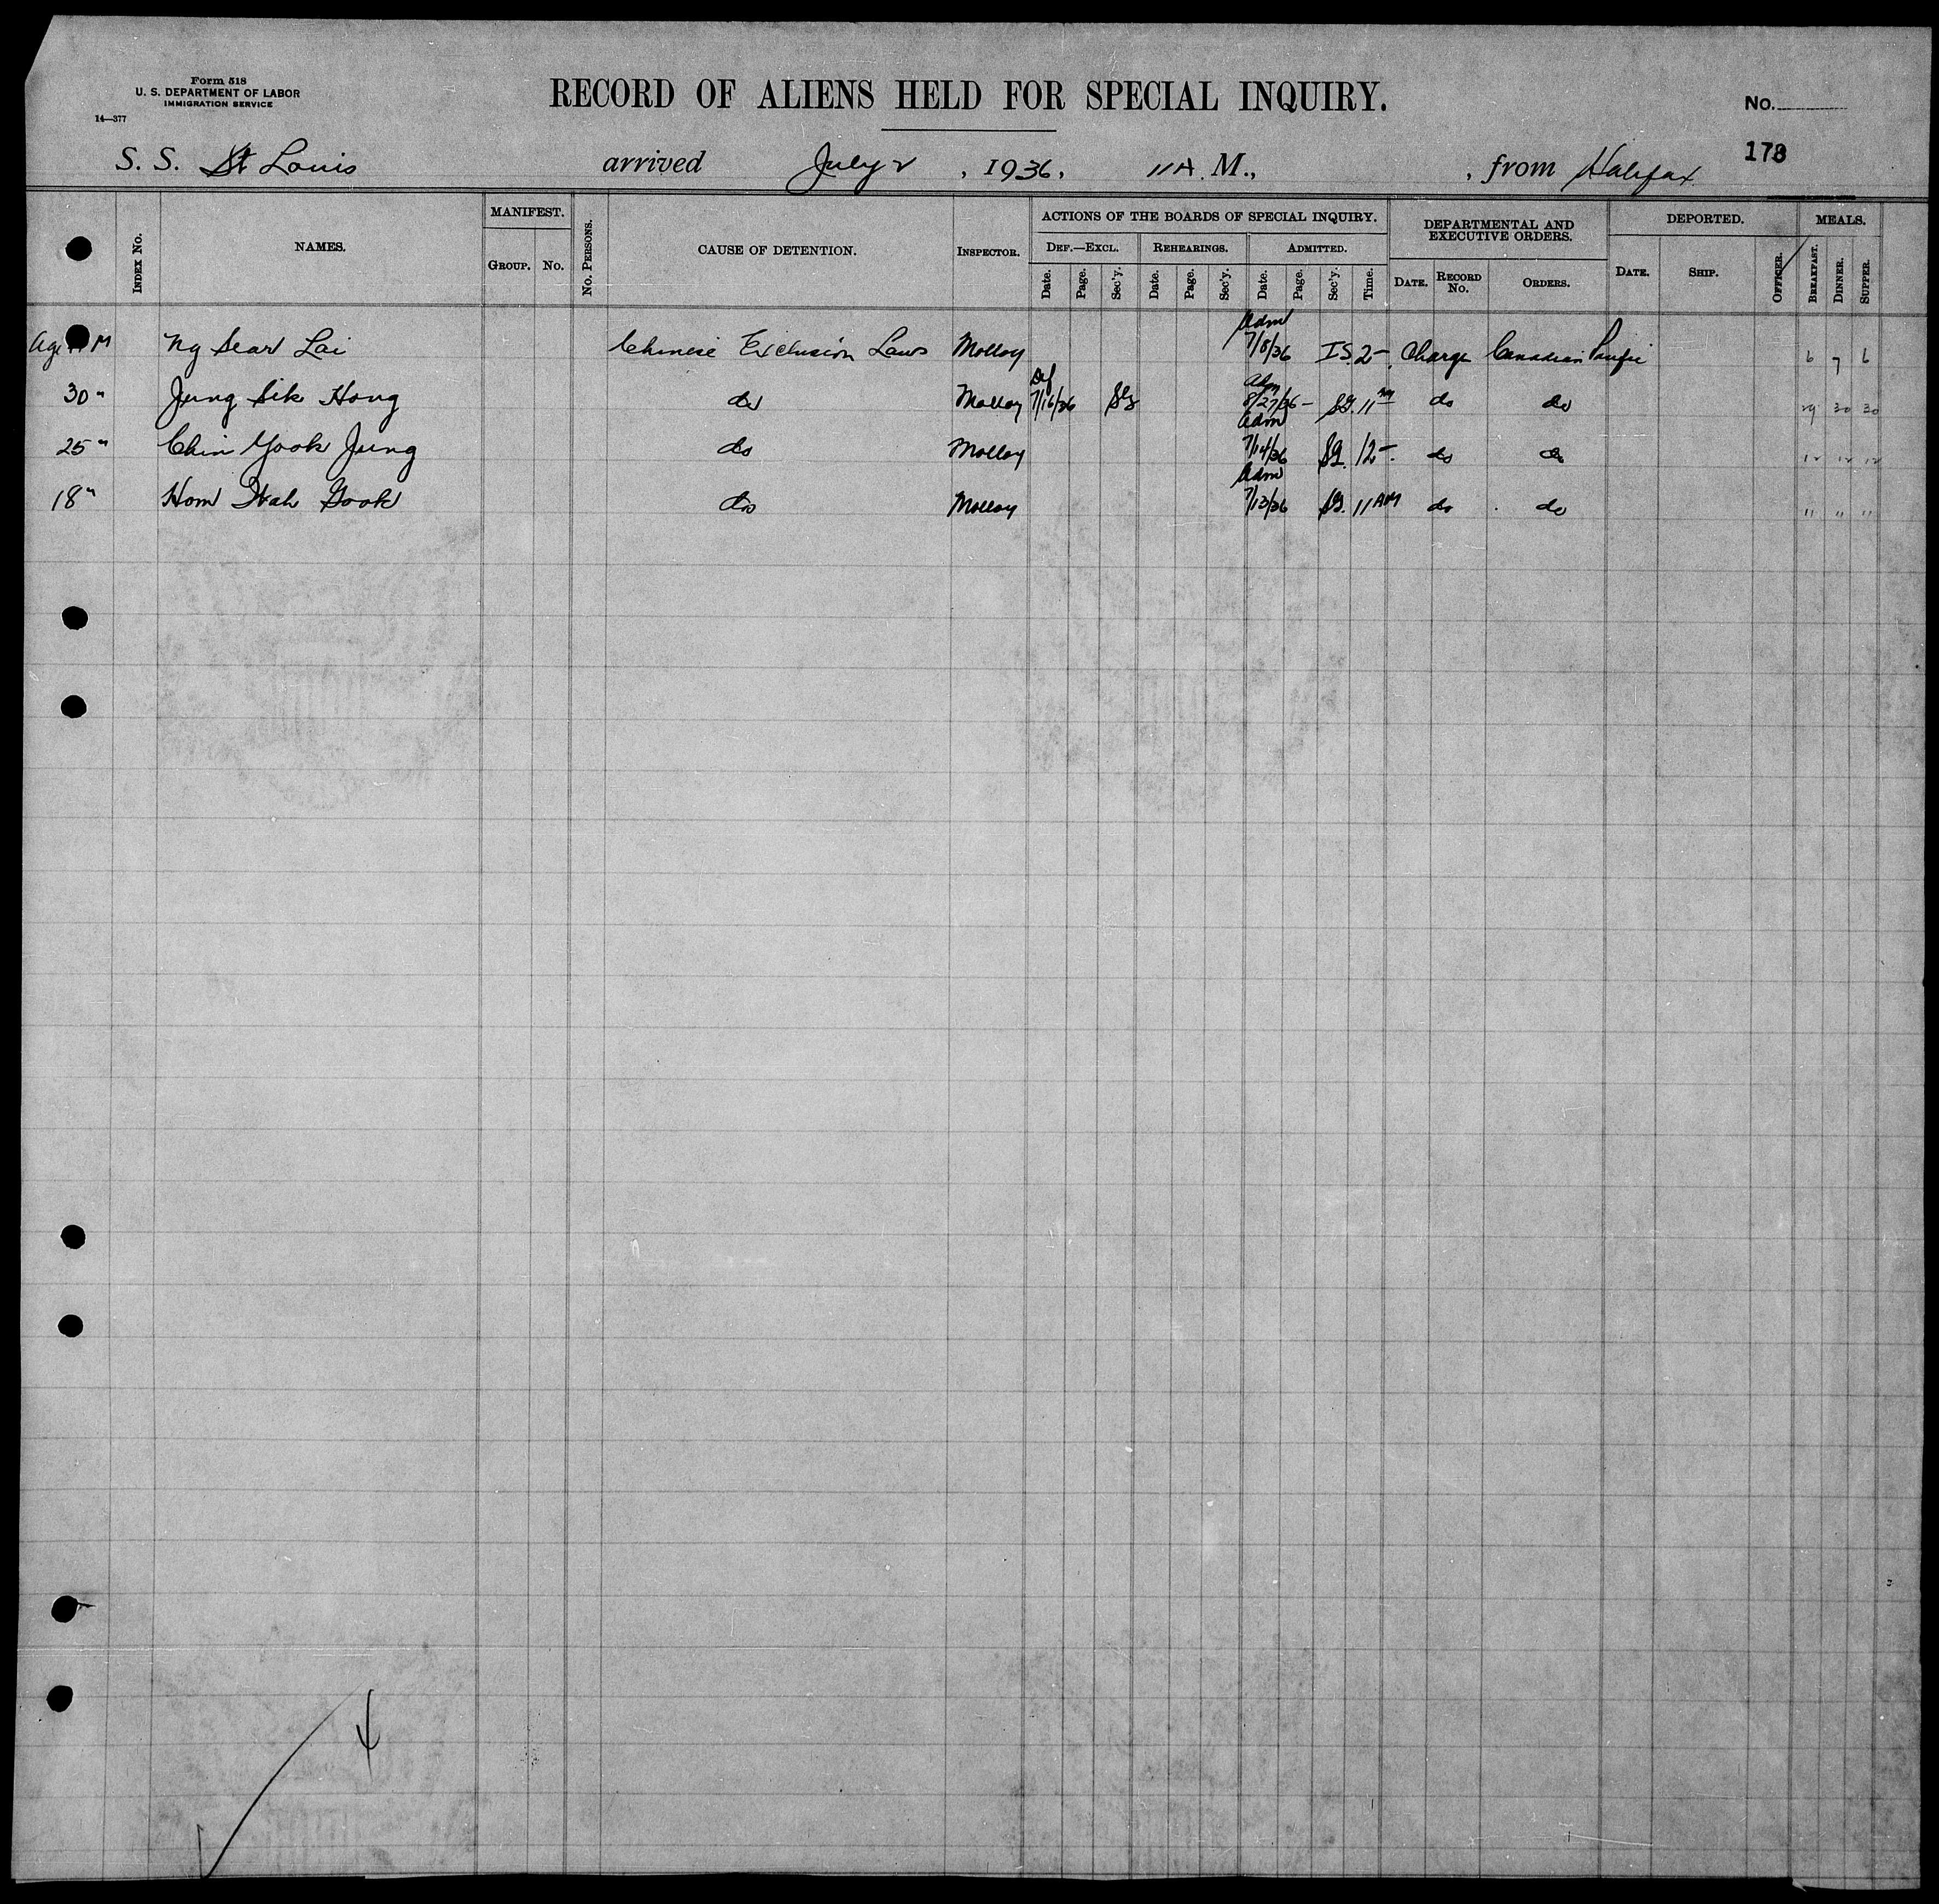 Form 518
U. S. DEPARTMENT OF LABOR
IMMIGRATION SERVICE
14—377
RECORD OF ALIENS HELD FOR SPECIAL INQUIRY.
No.
173
S. S. St Louis arrived July 2, 1936, 11 A. M., , from Halifax
INDEX NO. NAMES. MANIFEST. GROUP. NO. NO. PERSONS. CAUSE OF DETENTION. INSPECTOR. ACTIONS OF THE BOARDS OF SPECIAL INQUIRY. DEPARTMENTAL AND EXECUTIVE ORDERS. DEPORTED. MEALS.
DEF.—EXCL. REHEARINGS. ADMITTED.
Date. Page. Sec'y. Date. Page. Sec'y. Date. Page. Sec'y. Time. DATE. RECORD NO. ORDERS. DATE. SHIP. OFFICER. BREAKFAST. DINNER. SUPPER.
Age M Ng Sear Lai Chinese Exclusion Laws Molloy Adm 7/8/36 IS 2- Charge Canadian Pacific 6 7 6
30 " Jung Sik Hong do Molloy Def 7/16/36 Adm 8/27/36 - SG. 11 AM do do 29 30 30
25 " Chin Yook Jung do Molloy Adm 7/14/36 SG. 12- do do 12 12 12
18 " Hom Wah Gook do Molloy Adm 7/13/36 SG. 11 AM do do 11 11 11
4